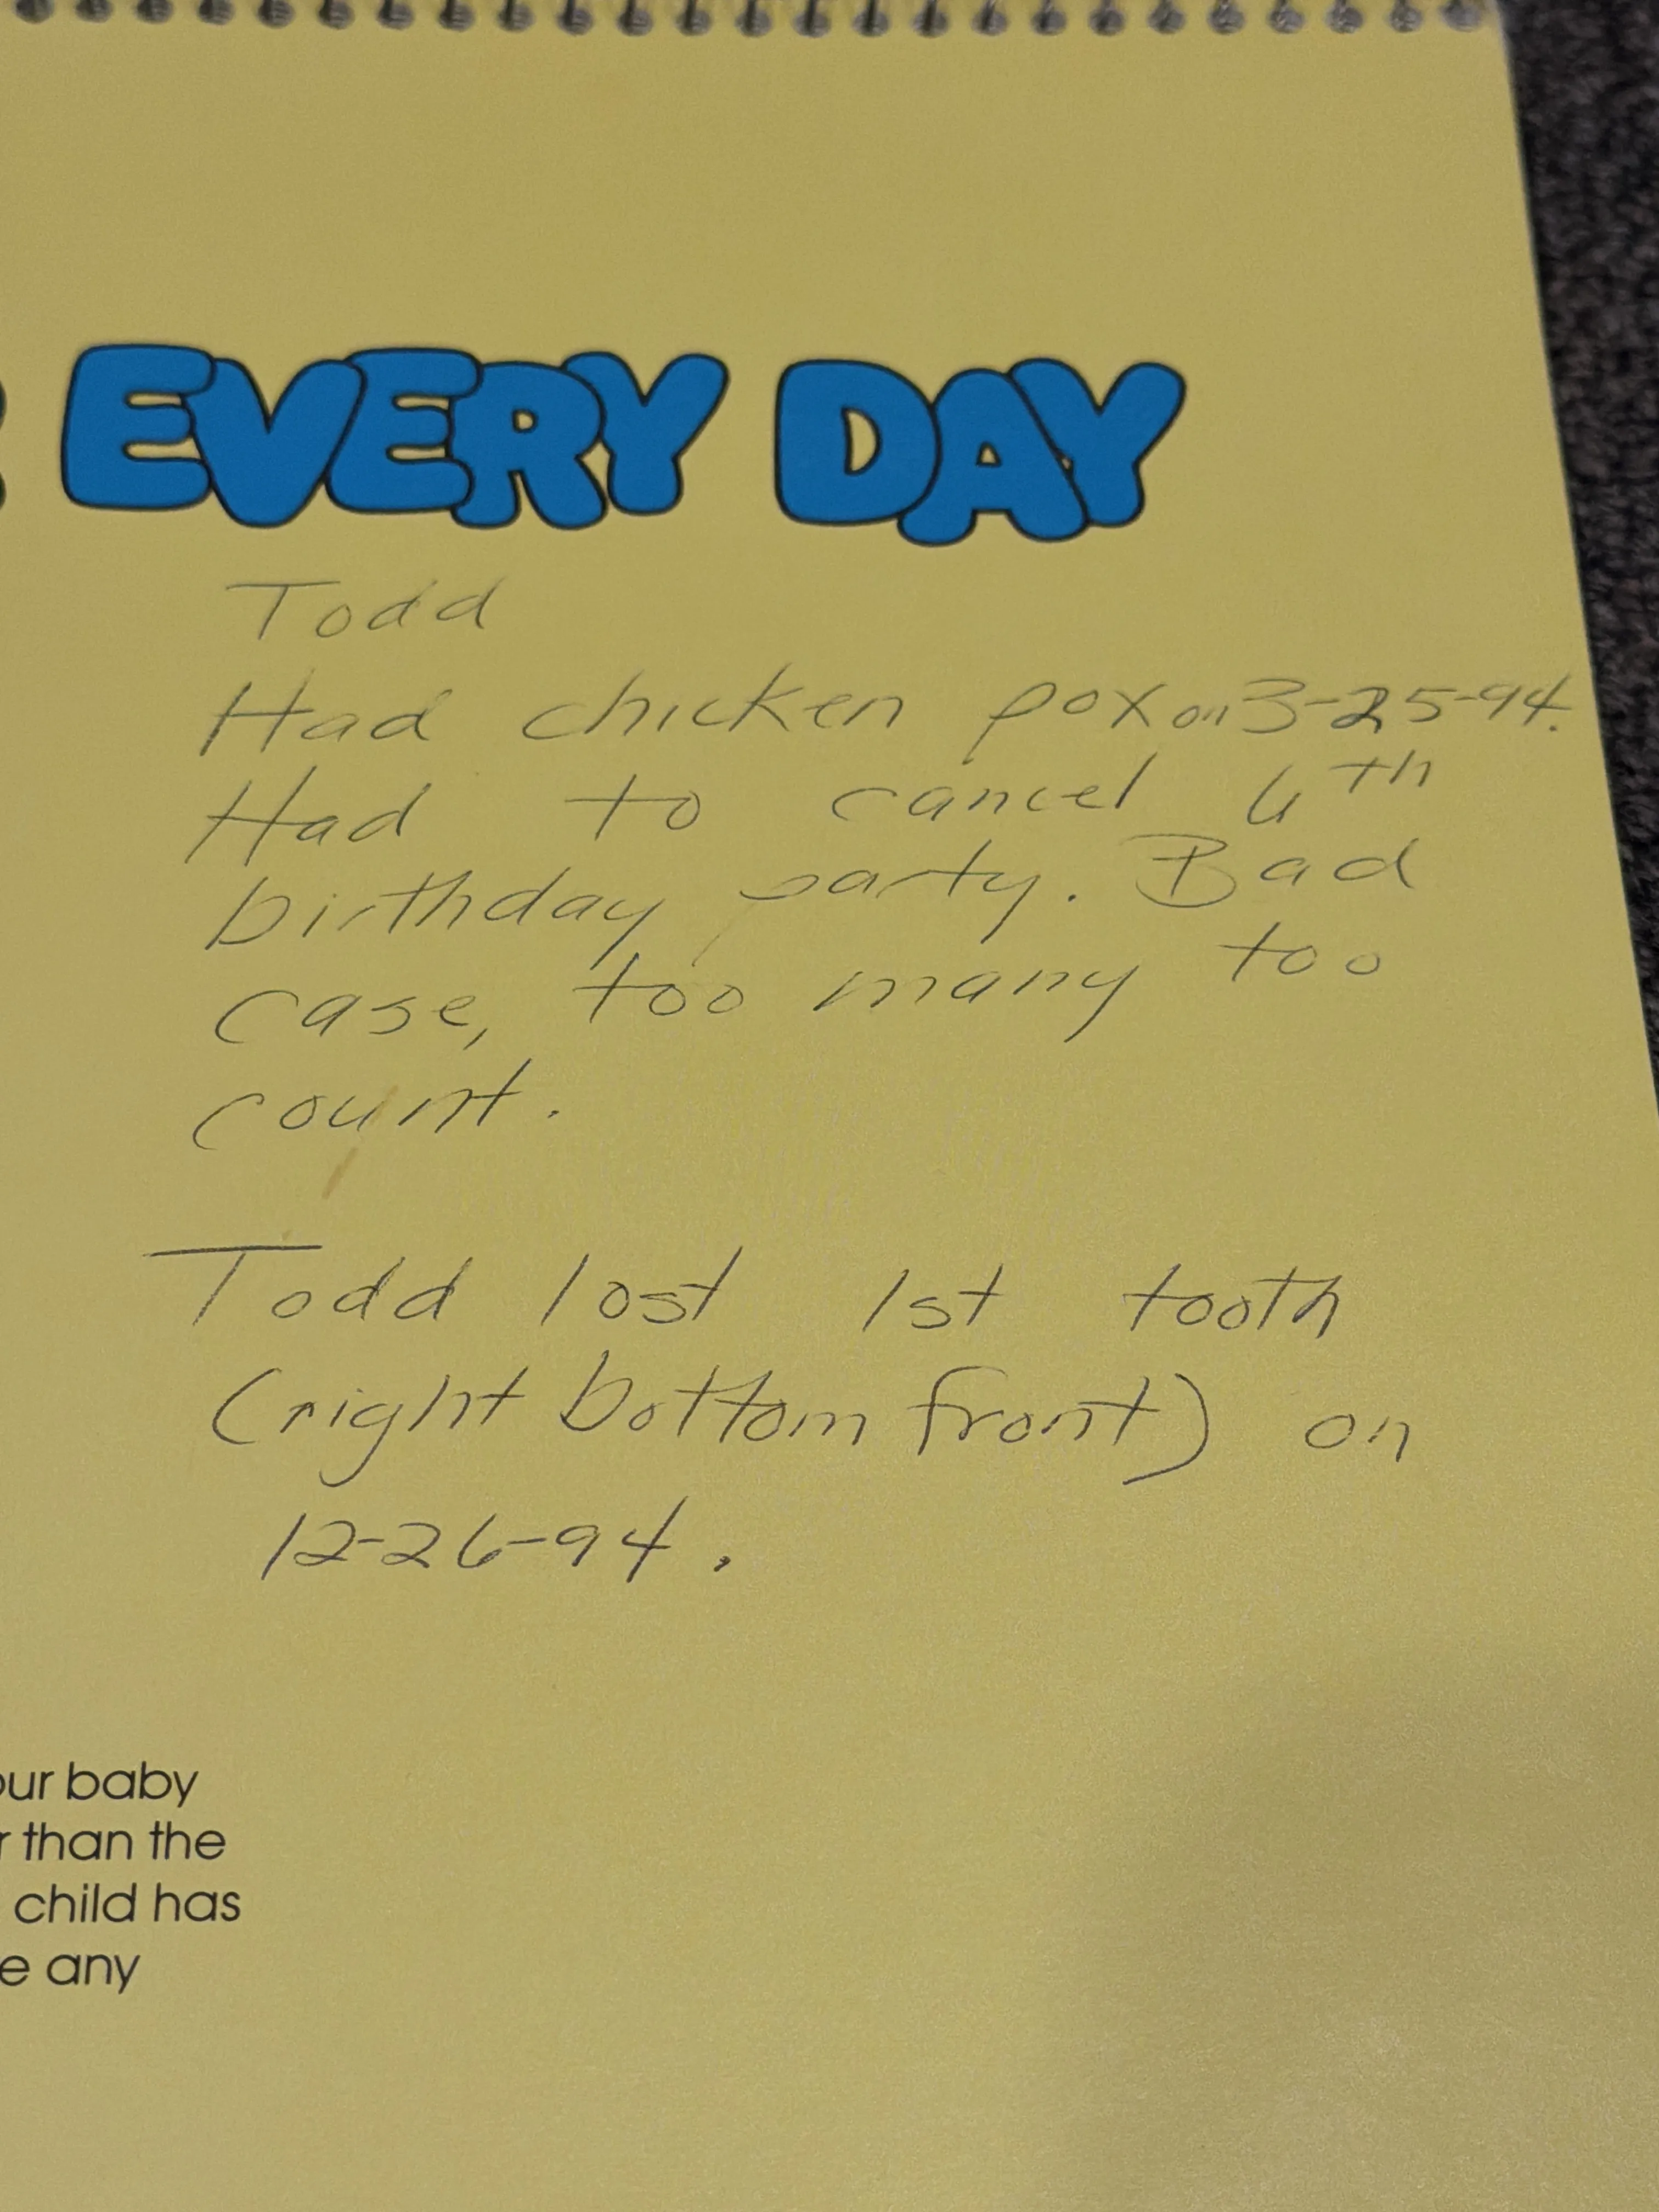 EVERY DAY
Todd
Had chicken pox on 3-25-94.
Had to cancel 6th
birthday party. Bad
case, too many too
count.
Todd lost 1st tooth
(right bottom front) on
12-26-94.
our baby
r than the
child has
e any